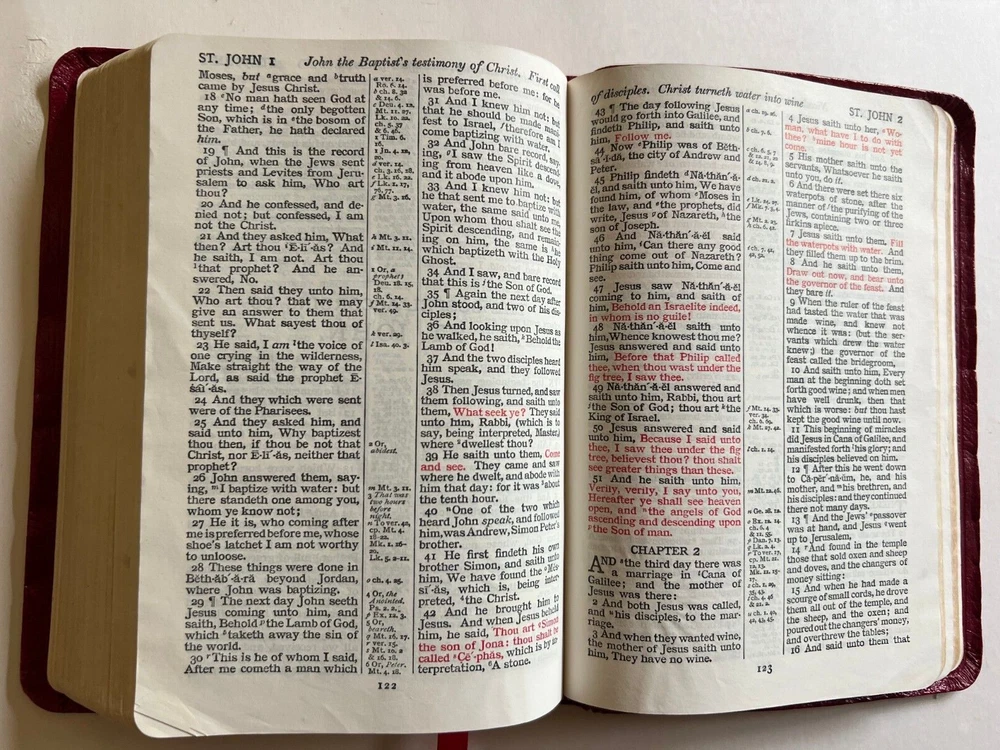 ST. JOHN 1 John the Baptist's testimony of Christ. First call
Moses, but ᵃgrace and ᵇtruth
came by Jesus Christ.
18 ᶜNo man hath seen God at
any time; ᵈthe only begotten
Son, which is in ᵉthe bosom of
the Father, he hath declared
him.
19 ¶ And this is the record
of John, when the Jews sent
priests and Levites from Jeru-
salem to ask him, Who art
thou?
20 And he confessed, and de-
nied not; but confessed, I am
not the Christ.
21 And they asked him, What
then? Art thou ᶠĒ-lī´-ăs? And
he saith, I am not. Art thou
¹that prophet? And he an-
swered, No.
22 Then said they unto him,
Who art thou? that we may
give an answer to them that
sent us. What sayest thou of
thyself?
23 He said, I am ᶦthe voice of
one crying in the wilderness,
Make straight the way of the
Lord, as said the prophet Ē-
śāi´-ăs.
24 And they which were sent
were of the Pharisees.
25 And they asked him, and
said unto him, Why baptizest
thou then, if thou be not that
Christ, nor Ē-lī´-ăs, neither that
prophet?
26 John answered them, say-
ing, ᵐI baptize with water: but
there standeth one among you,
whom ye know not;
27 He it is, who coming after
me is preferred before me, whose
shoe's latchet I am not worthy
to unloose.
28 These things were done in
Bĕth-ăb´-ă-ră beyond Jordan,
where John was baptizing.
29 ¶ The next day John seeth
Jesus coming unto him, and
saith, Behold ᵖthe Lamb of God,
which ³taketh away the sin of
the world.
30 ʳThis is he of whom I said,
After me cometh a man which
a ver. 14.
Ro. 6. 14.
b ch. 8. 32
& 14. 6.
c Deu. 4. 12.
Mt. 11. 27.
Lk. 10. 22.
ch. 5. 37
& 6. 46.
1 Tim. 6.
16.
1 Jn. 4. 12,
20.
d ver. 14.
ch. 3. 16, 18.
e Lk. 16. 22.
f Lk. 1. 17,
76, 77.
g Mt. 3. 16.
h Mt. 3. 11.
i Mt. 11. 14.
1 Or, a
prophet?
Deu. 18. 15,
18.
ch. 6. 14.
Mt. 14. 33.
ver. 49.
k ver. 29.
l Isa. 40. 3.
2 Or,
abidest.
m Mt. 3. 11.
3 That was
two hours
before
night.
n To ver. 42,
cp. Mt. 4.
18-22.
Mk. 1. 16-
20.
Lk. 5. 2-11.
o ch. 4. 25.
4 Or, the
Anointed.
Ps. 2. 2.
p Ex. 12. 3.
5 Or,
beareth.
q Mt. 16. 17.
r ver. 15.
s Mt. 10. 2
& 16. 18.
6 Or, Peter.
Mt. 4. 18.
is preferred before me: for he
was before me.
31 And I knew him not: but
that he should be made mani-
fest to Israel, ᶠtherefore am I
come baptizing with water.
32 And John bare record, say-
ing, ᵍI saw the Spirit descend-
ing from heaven like a dove,
and it abode upon him.
33 And I knew him not: but
he that sent me to baptize with
water, the same said unto me,
Upon whom thou shalt see the
Spirit descending, and remain-
ing on him, the same is ʰhe
which baptizeth with the Holy
Ghost.
34 And I saw, and bare record
that this is ʲthe Son of God.
35 ¶ Again the next day after
John stood, and two of his dis-
ciples;
36 And looking upon Jesus as
he walked, he saith, ᵏBehold the
Lamb of God!
37 And the two disciples heard
him speak, and they followed
Jesus.
38 Then Jesus turned, and saw
them following, and saith unto
them, What seek ye? They said
unto him, Rabbi, (which is to
say, being interpreted, Master,)
where ²dwellest thou?
39 He saith unto them, Come
and see. They came and saw
where he dwelt, and abode with
him that day: for it was ³about
the tenth hour.
40 ⁿOne of the two which
heard John speak, and followed
him, was Andrew, Simon Peter's
brother.
41 He first findeth his own
brother Simon, and saith unto
him, We have found the ᵒMes-
sī´-ăs, which is, being inter-
preted, ⁴the Christ.
42 And he brought him to
Jesus. And when Jesus beheld
him, he said, Thou art ᑫSimon
the son of Jona: thou shalt be
called ˢCē´-phăs, which is by in-
terpretation, ⁶A stone.
122
of disciples. Christ turneth water into wine ST. JOHN 2
43 ¶ The day following Jesus
would go forth into Galilee, and
findeth Philip, and saith unto
him, Follow me.
44 Now ᵃPhilip was of Bĕth-
să´-ĭ-dă, the city of Andrew and
Peter.
45 Philip findeth ᵈNă-thăn´-ă-
ĕl, and saith unto him, We have
found him, of whom ᵉMoses in
the law, and the prophets, did
write, Jesus ᵍof Nazareth, ʰthe
son of Joseph.
46 And Nă-thăn´-ă-ĕl said
unto him, ᶦCan there any good
thing come out of Nazareth?
Philip saith unto him, Come and
see.
47 Jesus saw Nă-thăn´-ă-ĕl
coming to him, and saith of
him, Behold an Israelite indeed,
in whom is no guile!
48 Nă-thăn´-ă-ĕl saith unto
him, Whence knowest thou me?
Jesus answered and said unto
him, Before that Philip called
thee, when thou wast under the
fig tree, I saw thee.
49 Nă-thăn´-ă-ĕl answered and
saith unto him, Rabbi, thou art
ʲthe Son of God; thou art ᵏthe
King of Israel.
50 Jesus answered and said
unto him, Because I said unto
thee, I saw thee under the fig
tree, believest thou? thou shalt
see greater things than these.
51 And he saith unto him,
Verily, verily, I say unto you,
Hereafter ye shall see heaven
open, and ⁿthe angels of God
ascending and descending upon
ᵖthe Son of man.
CHAPTER 2
AND ˢthe third day there was
a marriage in ᵗCana of
Galilee; and the mother of
Jesus was there:
2 And both Jesus was called,
and his disciples, to the mar-
riage.
3 And when they wanted wine,
the mother of Jesus saith unto
him, They have no wine.
a ch. 19. 26.
b ch. 7. 6.
c ch. 6. 5, 7
& 12. 21, 22
& 14. 8, 9.
d ch. 21. 2.
e Lk. 24. 27.
f Mk. 7. 3, 4.
g Mt. 2. 23.
h ch. 6. 42.
i ch. 7. 41,
42, 52.
j Mt. 14. 33.
ver. 34.
ch. 6. 69.
k Mt. 27. 42.
l ch. 1. 14.
m Mt. 12. 46.
n Ge. 28. 12.
o Ex. 12. 14.
ch. 6. 4
& 11. 55.
p Dan. 7. 13.
q Lk. 2. 4.
r To ver. 17,
cp. Mt. 21.
12, 13.
Mk. 11. 15-
17.
s ch. 1. 29,
35, 43.
t ch. 4. 46
& 21. 2.
u ch. 1. 40,
42, 43, 45.
4 Jesus saith unto her, ᵃWo-
man, what have I to do with
thee? ᵇmine hour is not yet
come.
5 His mother saith unto the
servants, Whatsoever he saith
unto you, do it.
6 And there were set there six
waterpots of stone, after the
manner of ᶠthe purifying of the
Jews, containing two or three
firkins apiece.
7 Jesus saith unto them, Fill
the waterpots with water. And
they filled them up to the brim.
8 And he saith unto them,
Draw out now, and bear unto
the governor of the feast. And
they bare it.
9 When the ruler of the feast
had tasted the water that was
made wine, and knew not
whence it was: (but the ser-
vants which drew the water
knew;) the governor of the
feast called the bridegroom,
10 And saith unto him, Every
man at the beginning doth set
forth good wine; and when men
have well drunk, then that
which is worse: but thou hast
kept the good wine until now.
11 This beginning of miracles
did Jesus in Cana of Galilee, and
manifested forth ˡhis glory; and
his disciples believed on him.
12 ¶ After this he went down
to Că-pĕr´-nă-ŭm, he, and his
mother, and ᵐhis brethren, and
his disciples: and they continued
there not many days.
13 ¶ And the Jews' ᵒpassover
was at hand, and Jesus ᑫwent
up to Jerusalem,
14 ʳAnd found in the temple
those that sold oxen and sheep
and doves, and the changers of
money sitting:
15 And when he had made a
scourge of small cords, he drove
them all out of the temple, and
the sheep, and the oxen; and
poured out the changers' money,
and overthrew the tables;
16 And said unto them that
123